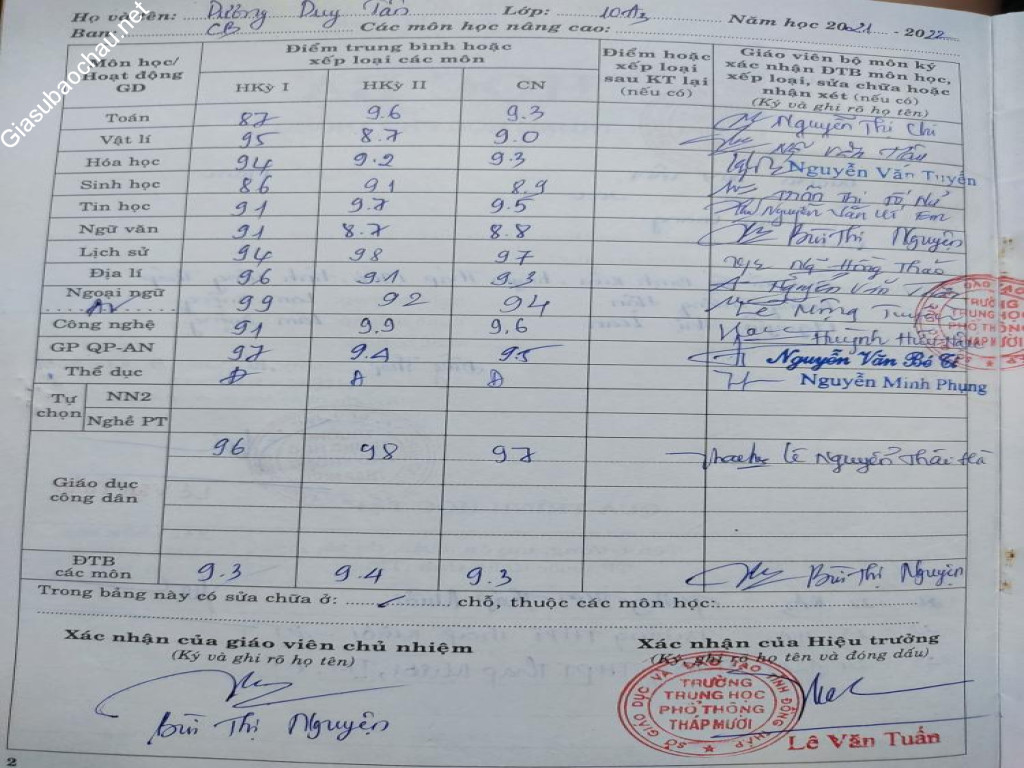 Họ và tên: Dương Duy Tân Lớp: 10A3 Năm học 2021 - 2022
Ban: CB Các môn học nâng cao:
Môn học/ Hoạt động GD
Điểm trung bình hoặc xếp loại các môn
HKỳ I HKỳ II CN
Điểm hoặc xếp loại sau KT lại (nếu có)
Giáo viên bộ môn ký xác nhận ĐTB môn học, xếp loại, sửa chữa hoặc nhận xét (nếu có)
(Ký và ghi rõ họ tên)
Toán 8.7 9.6 9.3 Nguyễn Thị Chi
Vật lí 9.5 8.7 9.0
Hóa học 9.4 9.2 9.3 Nguyễn Văn Tuyển
Sinh học 8.6 9.1 8.9
Tin học 9.1 9.7 9.5 Nguyễn Văn Út Em
Ngữ văn 9.1 8.7 8.8 Bùi Thị Nguyện
Lịch sử 9.4 9.8 9.7 Ngô Hồng Thảo
Địa lí 9.6 9.1 9.3 Nguyễn Văn
Ngoại ngữ AV 9.9 9.2 9.4 Lê Mộng Tuyền
Công nghệ 9.1 9.9 9.6 Huỳnh Hữu
GP QP-AN 9.7 9.4 9.5 Nguyễn Văn Bé Tí
Thể dục Đ Đ Đ Nguyễn Minh Phụng
Tự chọn
NN2
Nghề PT
Giáo dục công dân 9.6 9.8 9.7 Lê Nguyễn Thái Hà
ĐTB các môn 9.3 9.4 9.3 Bùi Thị Nguyện
Trong bảng này có sửa chữa ở: chỗ, thuộc các môn học:
Xác nhận của giáo viên chủ nhiệm
(Ký và ghi rõ họ tên)
Bùi Thị Nguyện
Xác nhận của Hiệu trưởng
(Ký, ghi rõ họ tên và đóng dấu)
SỞ GIÁO DỤC VÀ ĐÀO TẠO TỈNH ĐỒNG THÁP
TRƯỜNG
TRUNG HỌC
PHỔ THÔNG
THÁP MƯỜI
Lê Văn Tuấn
TRƯỜNG
TRUNG HỌC
PHỔ THÔNG
THÁP MƯỜI
2
Giasubaochau.net